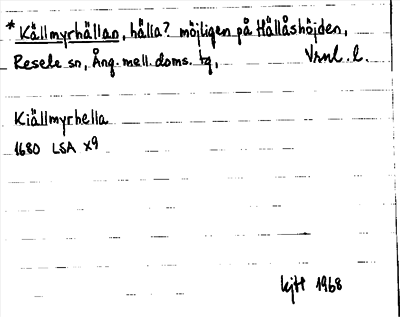 * Källmyrhällan, hälla? möjligen på Hållåshöjden,
Resele sn, Ång. mell. doms. tg, Vrnl. l.
Kiällmyrhella
1680 LSA X9
kjH 1968